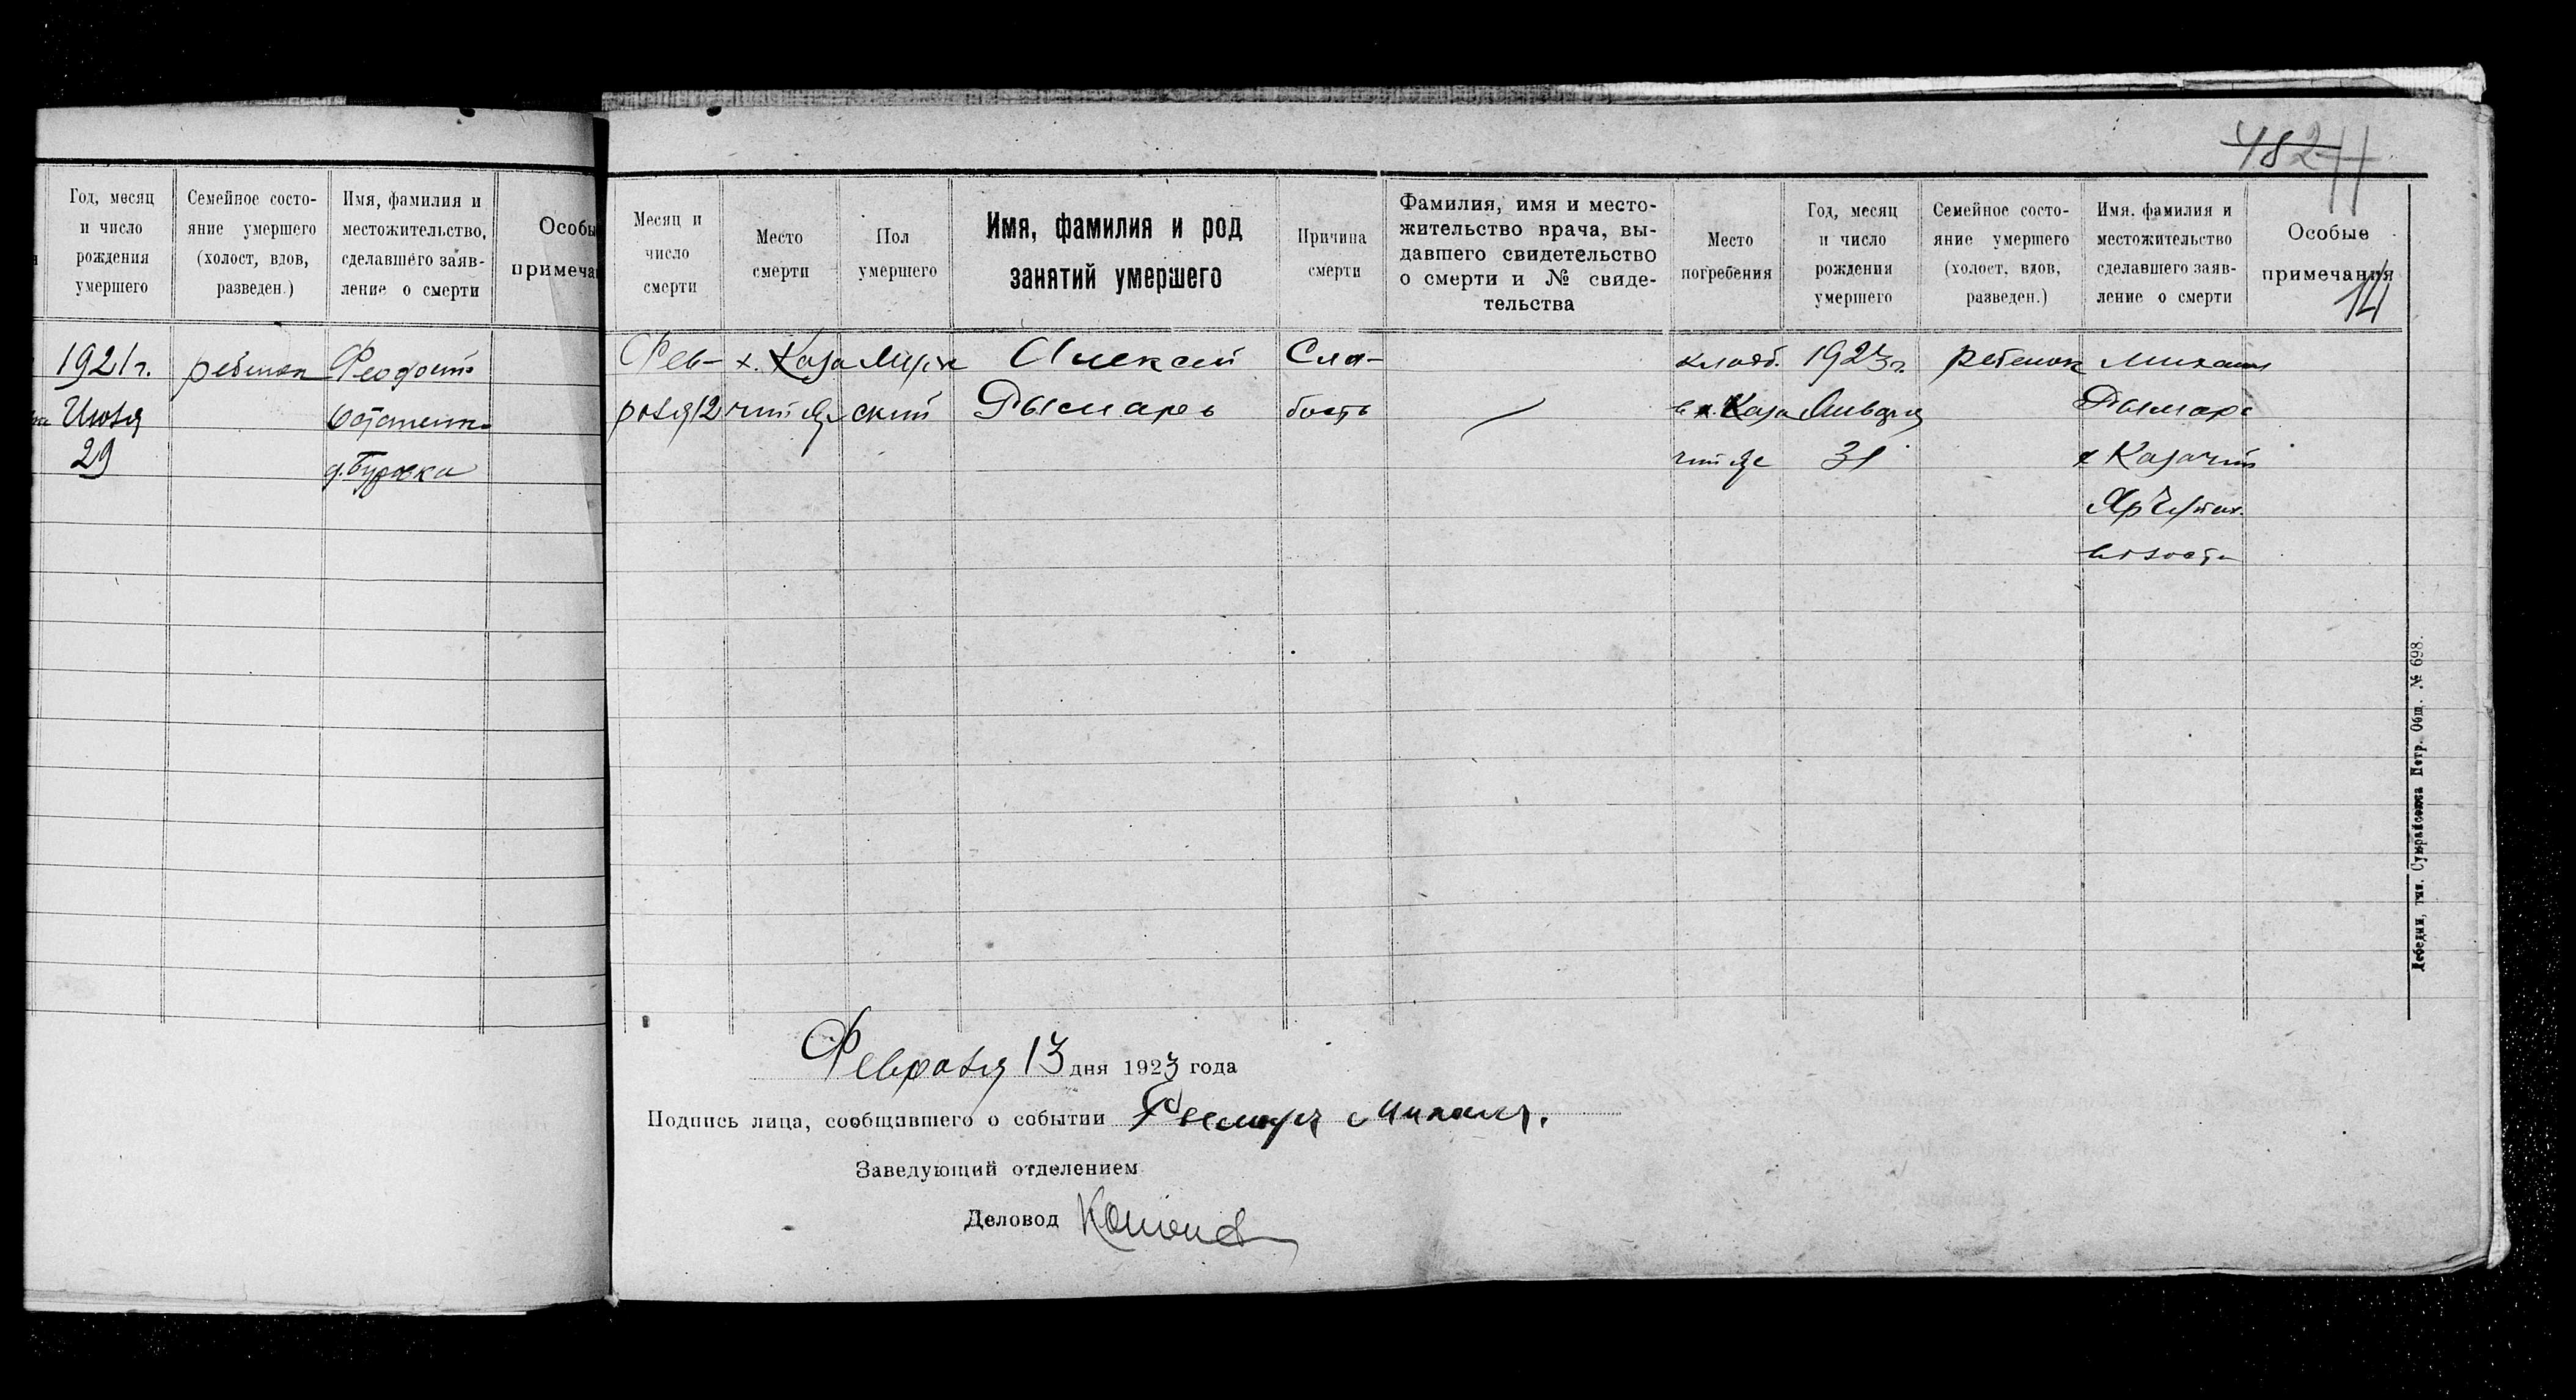 48 2
77
14
Год, месяц
и число
рождения
умершего
Семейное состо-
яние умершего
(холост, вдов,
разведен.)
Имя, фамилия и
местожительство,
сделавшего заяв-
ление о смерти
Особы
примеча
1921 г.
Июля
29
ребенок
Феодосий
Остапенко
Месяц и
число
смерти
Место
смерти
Пол
умершего
Имя, фамилия и род
занятий умершего
Причина
смерти
Фамилия, имя и место-
жительство врача, вы-
давшего свидетельство
о смерти и № свиде-
тельства
Место
погребения
Год, месяц
и число
рождения
умершего
Семейное состо-
яние умершего
(холост, вдов,
разведен.)
Имя. фамилия и
местожительство
сделавшего заяв-
ление о смерти
Особые
примечания
Фев-
раля 12
х. Каза
чий Яр
Муж
ский
Алексей
Рымарев
Сла-
бость
кладб.
в х. Каза
чий Яре
1923 г.
Января
31
ребенок
Михаил
Рымарь
х Казачий
Яр
волости
Февраля 13 дня 1923 года
Подпись лица, сообщившего о событии Рымарь Михаил.
Заведующий отделением
Деловод
Лебедин, тип. Сумрайсоюза Петр. Общ. № 698.